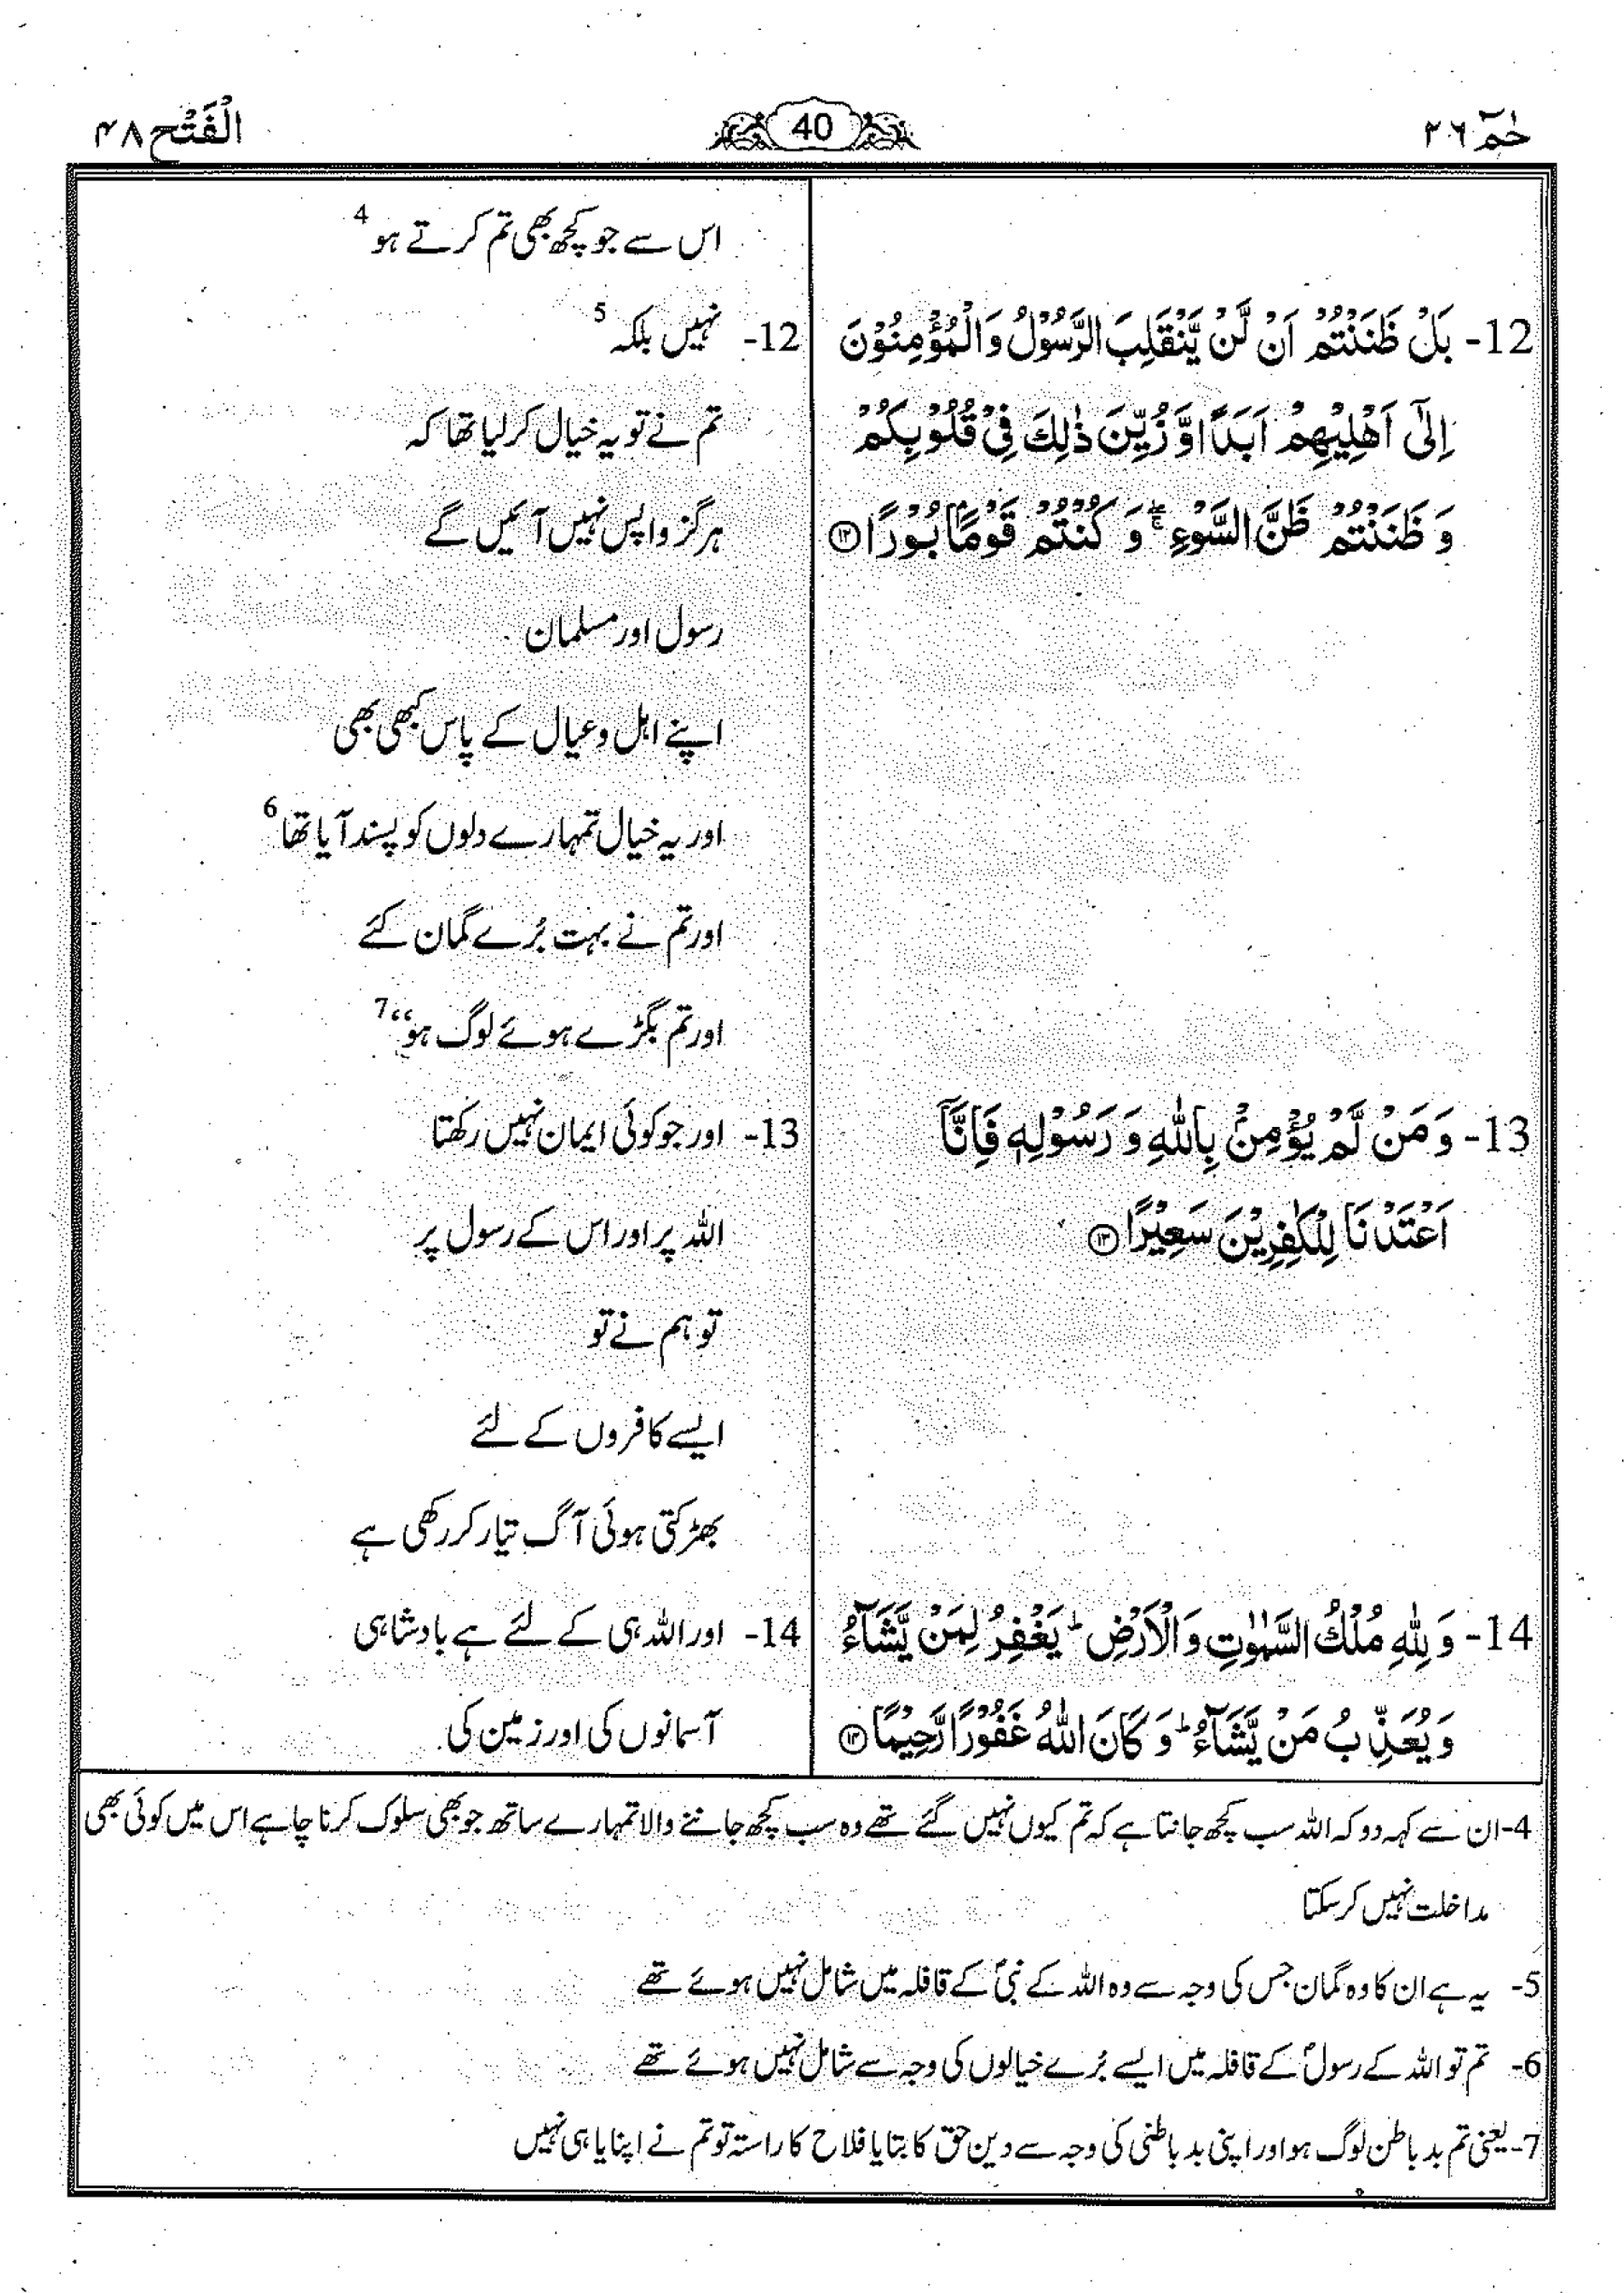 حٰمٓ ۲۶
40
الْفَتْح ۴۸
اس سے جو کچھ بھی تم کرتے ہو 4
12- بَلْ ظَنَنْتُمْ اَنْ لَّنْ یَّنْقَلِبَ الرَّسُوْلُ وَ الْمُؤْمِنُوْنَ
اِلٰۤی اَهْلِیْهِمْ اَبَدًا وَّ زُیِّنَ ذٰلِكَ فِیْ قُلُوْبِكُمْ
وَ ظَنَنْتُمْ ظَنَّ السَّوْءِ ۖۚ وَ كُنْتُمْ قَوْمًۢا بُوْرًا ﴿۱۲﴾
12- نہیں بلکہ 5
تم نے تو یہ خیال کر لیا تھا کہ
ہرگز واپس نہیں آئیں گے
رسول اور مسلمان
اپنے اہل و عیال کے پاس کبھی بھی
اور یہ خیال تمہارے دلوں کو پسند آیا تھا 6
اور تم نے بہت بُرے گمان کئے
اور تم بگڑے ہوئے لوگ ہو“ 7
13- وَ مَنْ لَّمْ یُؤْمِنْۢ بِاللّٰهِ وَ رَسُوْلِهٖ فَاِنَّاۤ
اَعْتَدْنَا لِلْكٰفِرِیْنَ سَعِیْرًا ﴿۱۳﴾
13- اور جو کوئی ایمان نہیں رکھتا
اللہ پر اور اس کے رسول پر
تو ہم نے تو
ایسے کافروں کے لئے
بھڑکتی ہوئی آگ تیار کر رکھی ہے
14- وَ لِلّٰهِ مُلْكُ السَّمٰوٰتِ وَ الْاَرْضِ ؕ یَغْفِرُ لِمَنْ یَّشَآءُ
وَ یُعَذِّبُ مَنْ یَّشَآءُ ؕ وَ كَانَ اللّٰهُ غَفُوْرًا رَّحِیْمًا ﴿۱۴﴾
14- اور اللہ ہی کے لئے ہے بادشاہی
آسمانوں کی اور زمین کی
4- ان سے کہہ دو کہ اللہ سب کچھ جانتا ہے کہ تم کیوں نہیں گئے تھے وہ سب کچھ جاننے والا تمہارے ساتھ جو بھی سلوک کرنا چاہے اس میں کوئی بھی
مداخلت نہیں کر سکتا
5- یہ ہے ان کا وہ گمان جس کی وجہ سے وہ اللہ کے نبیؐ کے قافلہ میں شامل نہیں ہوئے تھے
6- تم تو اللہ کے رسولؐ کے قافلہ میں ایسے بُرے خیالوں کی وجہ سے شامل نہیں ہوئے تھے
7- یعنی تم بد باطن لوگ ہو اور اپنی بد باطنی کی وجہ سے دین حق کا بتایا فلاح کا راستہ تو تم نے اپنایا ہی نہیں